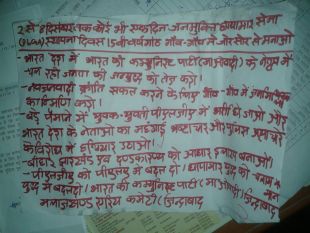 2 से 8 दिसम्बर तक कोई भी एक दिन जनमुक्ति छापामार सेना
(PLGA) स्थापना दिवस 15वीं वर्षगांठ गाँव-गाँव में जोर शोर से मनाओ
- भारत देश में भारत की कम्युनिस्ट पार्टी (माओवादी) के नेतृत्व में
चल रही जनयुद्ध को तेज करो।
- नवजनवादी क्रांति सफल करने के लिए गाँव-गाँव में
का निर्माण करो।
- बड़े पैमाने में युवक-युवती पीएलजीए में भर्ती हो जाओ और
भारत देश के नेताओं का महंगाई भ्रष्टाचार और पुलिस
के विरोध में हथियार उठाओ।
- बिहार झारखंड एवं दण्डकारण्य को आधार इलाका बनाओ।
- पीएलजीए को पीएलए में बदल दो। छापामार युद्ध को
युद्ध में बदल दो। भारत की कम्युनिस्ट पार्टी (माओवादी) जिन्दाबाद
कमेटी जिन्दाबाद